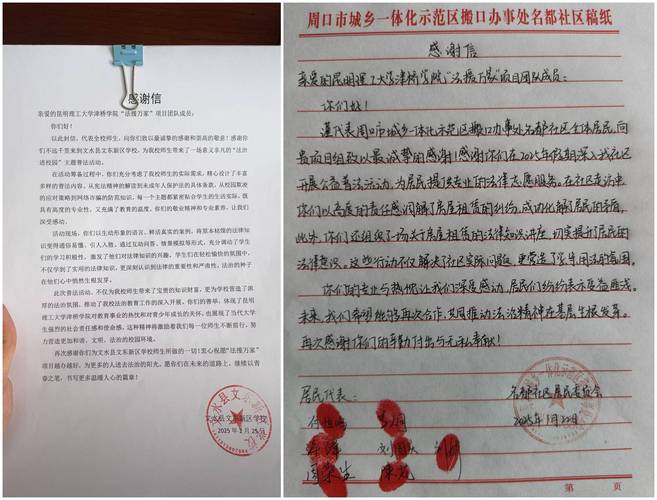 感谢信
亲爱的昆明理工大学津桥学院“法援万家”项目团队成员：
你们好！
以此封信，代表全校师生，向你们致以最诚挚的感谢和崇高的敬意！感谢你
们不远千里来到文水县文东新区学校，为我校师生带来了一场意义非凡的“法治
进校园”主题普法活动。
在活动筹备过程中，你们充分考虑了我校师生的实际需求，精心设计了丰富
多样的普法内容。从宪法精神的解读到未成年人保护法的具体条款，从校园欺凌
的应对策略到网络诈骗的防范知识，每一个主题都紧密贴合学生的生活实际，既
具有高度的专业性，又充满了教育的温度。你们的敬业精神和专业素养，让我们
深受感动。
活动现场，你们以生动形象的语言、鲜活真实的案例，将原本枯燥的法律知
识变得通俗易懂、引人入胜。通过互动问答、情景模拟等形式，充分调动了学生
们的学习积极性，激发了他们对法律知识的兴趣。学生们在轻松愉悦的氛围中，
不仅学到了实用的法律知识，更深刻认识到法律的重要性和严肃性，法治的种子
在他们心中悄然生根发芽。
此次普法活动，不仅为我校师生带来了宝贵的知识财富，更为学校营造了浓
厚的法治氛围，推动了我校法治教育工作的深入开展。你们的善举，体现了昆明
理工大学津桥学院对教育事业的热忱和对青少年成长的关怀，也展现了当代大学
生强烈的社会责任感和使命感。这种精神将激励着我们每一位师生不断前行，努
力营造更加和谐、文明、法治的校园环境。
再次感谢你们为文水县文东新区学校师生所做的一切！衷心祝愿“法援万家”
项目越办越好，为更多的人送去法治的阳光。愿你们在未来的道路上，继续以青
春之笔，书写更多温暖人心的篇章！
文水县文东新区学校
2025年1月25日
周口市城乡一体化示范区搬口办事处名都社区稿纸
感谢信
亲爱的昆明理工大学津桥学院“法援万家”项目团队成员：
你们好！
谨代表周口市城乡一体化示范区搬口办事处名都社区全体居民，向
贵项目组致以最诚挚的感谢！感谢你们在2025年假期深入我社区
开展公益普法活动，为居民提供专业的法律志愿服务。在社区走访中，
你们以高度的责任感调解了房屋租赁的纠纷，成功化解了居民的矛盾。
此外，你们还组织了一场关于房屋租赁的法律知识讲座，切实提升了居民的
法律意识。这些行动不仅解决了社区实际问题，更营造了学法用法的氛围。
你们的专业与热忱让我们深受感动，居民们纷纷表示受益匪浅。
未来，我们希望能够再次合作，共同推动法治精神在基层生根发芽。
再次感谢你们的辛勤付出与无私奉献！
居民代表：
名都社区居民委员会
2025年1月22日
第 页